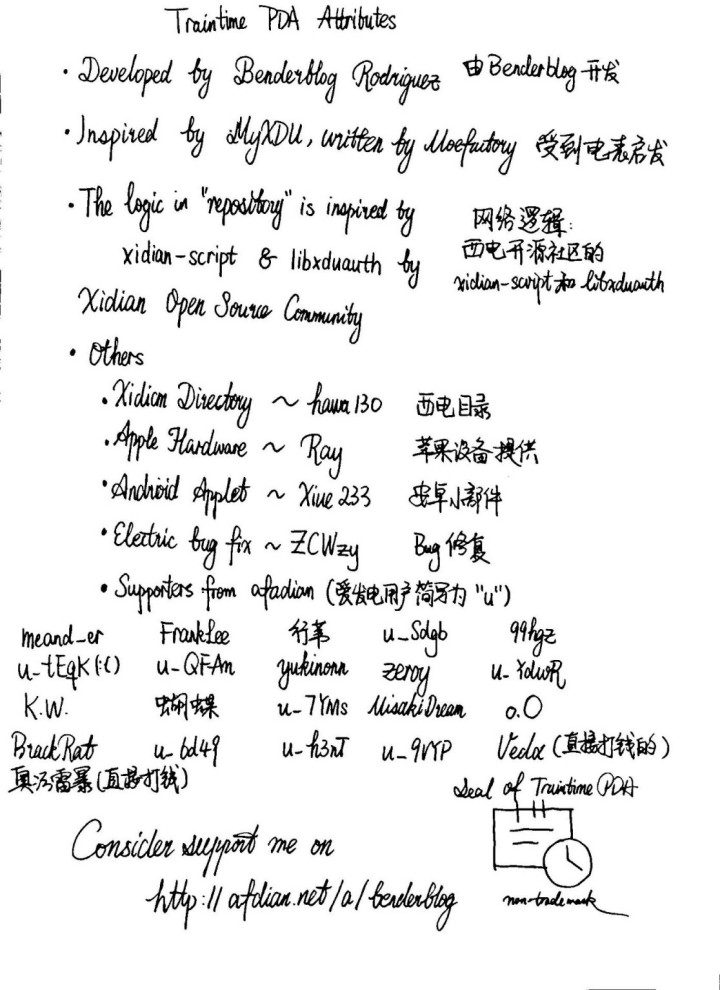 Traintime PDA Attributes
• Developed by Benderblog Rodriguez 由Benderblog开发
• Inspired by MyXDU, written by Moefactory 受到电表启发
• The logic in "repository" is inspired by 网络逻辑:
xidian-script & libxduauth by 西电开源社区的
Xidian Open Source Community xidian-script和libxduauth
• Others
• Xidian Directory ~ hawa130 西电目录
• Apple Hardware ~ Ray 苹果设备提供
• Android Applet ~ Xiue233 安卓小部件
• Electric bug fix ~ ZCWzy Bug修复
• Supporters from afadian (爱发电用户简写为"u")
meand_er FrankLee 行苇 u_Sdgb 99hgz
u_tEqK(:() u_QFAn yukinonn zeroy u_YdwR
K.W. 蝴蝶 u_7YMs MisakiDream o.O
BrackRat u_6d49 u_h3nT u_9VYP Vedx (直接打钱的)
雷暴(直接打钱)
Seal of Traintime PDA
Consider support me on
http://afdian.net/a/benderblog
non-trademark